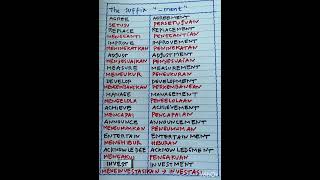 The suffix "-ment"
AGREE AGREEMENT
SETUJU PERSETUJUAN
REPLACE REPLACEMENT
MENGGANTI PENGGANTIAN
IMPROVE IMPROVEMENT
MENINGKATKAN PENINGKATAN
ADJUST ADJUSTMENT
MENYESUAIKAN PENYESUAIAN
MEASURE MEASUREMENT
MENGUKUR PENGUKURAN
DEVELOP DEVELOPMENT
MENGEMBANGKAN PERKEMBANGAN
MANAGE MANAGEMENT
MENGELOLA PENGELOLAAN
ACHIEVE ACHIEVEMENT
MENCAPAI PENCAPAIAN
ANNOUNCE ANNOUNCEMENT
MENGUMUMKAN PENGUMUMAN
ENTERTAIN ENTERTAINMENT
MENGHIBUR HIBURAN
ACKNOWLEDGE ACKNOWLEDGMENT
MENGAKU PENGAKUAN
INVEST INVESTMENT
MENGINVESTASIKAN → INVESTASI